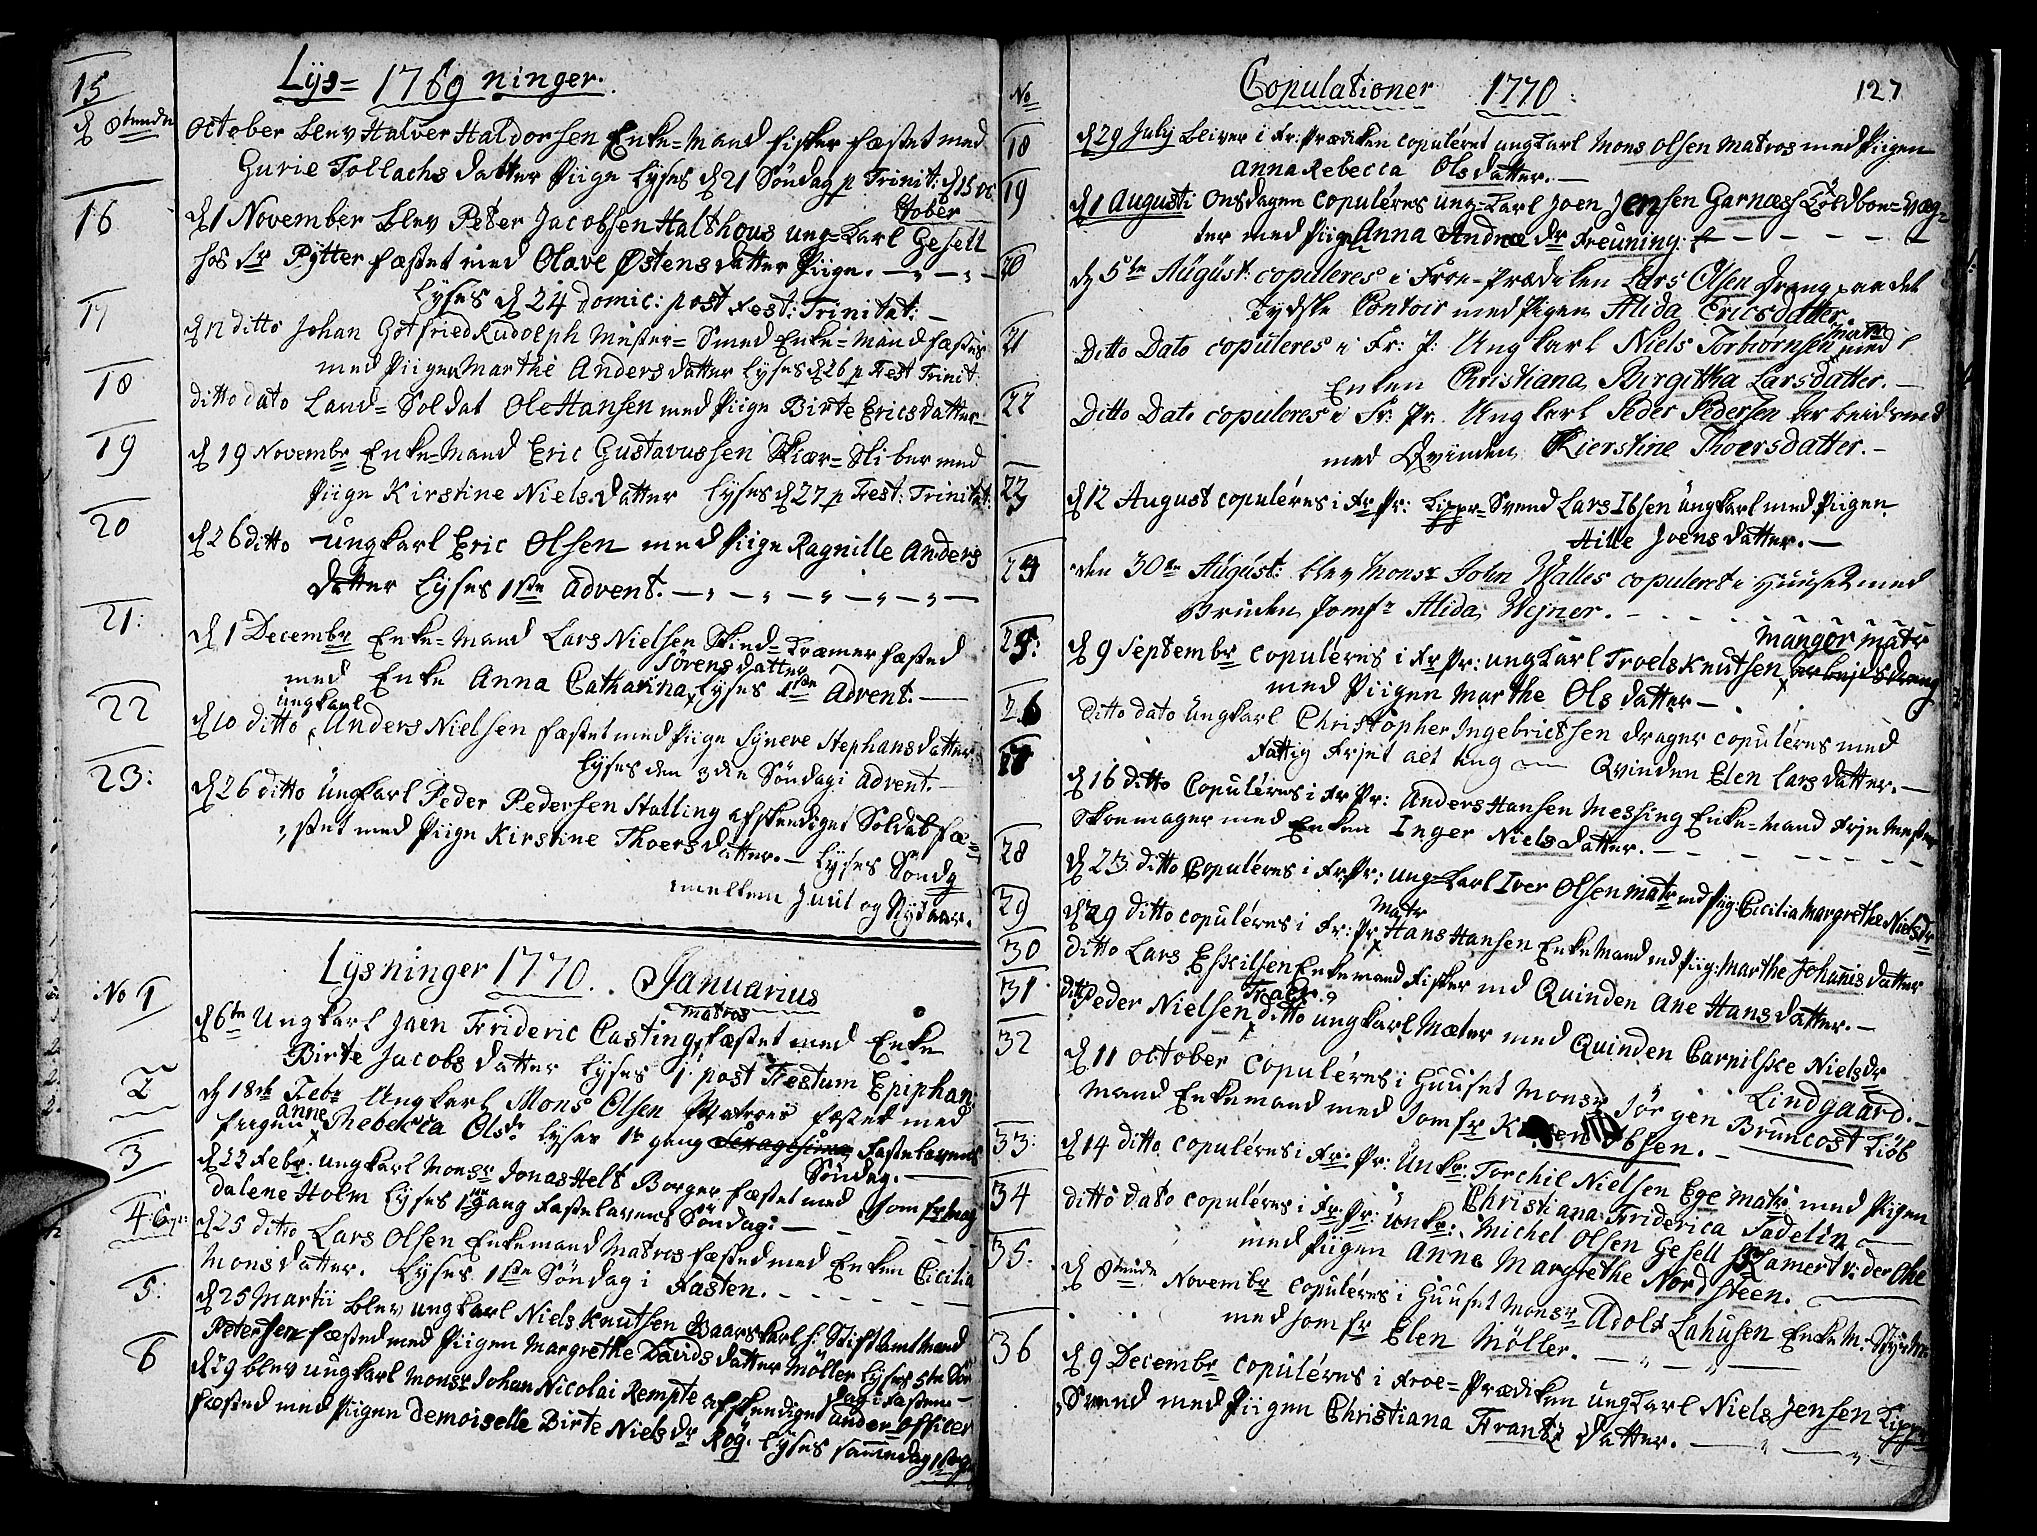 Lys= 1769 ninger.
15
d 8tende October blev Halver Haldorsen Enke=Mand fisker fæstet med
Gurie Tollachs datter Piige lyses d 21 Söndag p Trinit: d 15 oc
tober
16
d 1 November blev Peter Jacobsen Halthous ung=Karl Gesell
hos Sr Pÿtter fæstet med Olave Østens datter Piige.
lyses d 24 domic: post Fest: Trinitat:
17
d 12 ditto Johan Gotfried Rudolph Mester=Smed Enke=Mand fæstes
med Piigen Marthe Anders datter lyses d 26 p Fest Trinit
18
ditto dato Land=Soldat Ole Hansen med Piige Birte Erics datter
19
d 19 Novembr Enke=Mand Eric Gustavussen Skiær=Sliber med
Piige Kirstine Niels datter lyses d 27 p Fest: Trinitat:
20
d 26 ditto ungkarl Eric Olsen med Piige Ragnille Anders
datter lyses 1ste Advent.
21:
d 1 Decembr Enke=Mand Lars Nielsen Skind=Kræmer fæsted
Sörens datter
med Enke Anna Catharina lyses 1ste Advent.
ungkarl
22
d 10 ditto Anders Nielsen fæstet med Piige Syneve Stephans datter
lyses den 3die Söndag i Advent.
23:
d 26 ditto ungkarl Peder Pedersen Stalling afskendiget Soldat fæ=
stet med Piige Kirstine Thoers datter. lyses Söndg
mellem Juul og Nyeaar.
Lysninger 1770. Januarius
No 1
matros
d 6te Ungkarl Jaen Frideric Casting fæstet med Enke
Birte Jacobs datter lyses 1 post Festum Epiphan
2
d 18de Febr Ungkarl Mons Olsen Matros fæstet med
anne
Piigen Rebecca Olsdr lyses 1te gang Sexagesima Fastelavens
Söndag.
3
d 22 Febr: ungkarl Monsr Jonas Helt Borger fæstet med Jomfr Mag
dalene Holm lyses 1te gang Fastelavens Söndag:
4
d 25 ditto Lars Olsen Enkemand Matros fæsted med Enken Cicilia
Monsdatter. lyses 1ste Söndag i Fasten.
5:
d 25 Martii blev ungkarl Niels Knutsen Baarskarl h: Stift Amtmand
Petersen fæsted med Piigen Margrethe Davids datter Möller lyses 5te Sön
dag i Fasten
6
d 29 blev ungkarl Monsr Johan Nicolai Rempte afskendiget under=officer
fæsted med Piigen Demoiselle Birte Niels dr Rög. lyses samme dag
Copulationer 1770.
127
No
18
d 29 July bliver i Fr: Prædiken copuléret ungkarl Mons Olsen Matros med Piigen
Anna Rebecca Olsdatter.
19
d 1 Augusti Onsdagen copuléres ung=Karl Joen Jensen Garnæs Köldbon=Væg=
ter med Piige Anna Andreæ dr Freuning.
20
d 5te August: copuleres i Froe=Prædiken Lars Olsen Dreng paa det
Tydske Contoir med Pigen Alida Ericsdatter.
21
Matr
Ditto Dato copuleres i Fr: P: Ungkarl Niels Torbiornsen med
Enken Christiana Birgitha Larsdatter.
22
Ditto Dato copuleres i Fr: Pr. Ungkarl Peder Pedersen Arbeidsmd
med Qvinden Kierstine Thoersdatter.
23
d 12 August copuléres i Fr Pr: Kipper=Svend Lars Ibsen ungkarl med Piigen
Hille Joens datter.
24
den 30te August: blev Monsr John Walles copulert i Huuset med
Bruden Jomfr Alida Wejner.
25:
Mangor matr
d 9 Septembr copuléres i Fr Pr: ungkarl Troels Knutsen arbejdsdreng
med Piigen Marthe Ols datter
26
ditto dato ungkarl Christopher Ingebrictsen drager copuléres med
fattig frjet alt ting Qvinden Elen Lars datter.
27
d 16 ditto Copuléres i Fr Pr: Anders Hansen Messing Enke=Mand Frje Mester
Skoemager med Enken Inger Niels datter.
28
d 23 ditto Copuléres i Fr Pr: ung=Karl Iver Olsen Matr md Piig: Cicilia Margrethe Niels dr
29
Matr
d 29 ditto copuléres i Fr: Pr Hans Hansen Enke Mand md Piig: Marthe Johannis datter
30
ditto Lars Eskilsen Enkemand Fisker md Quinden Ane Hans datter.
31
ditto Peder Nielsen ditto ungkarl Mæter med Quinden Carnilske Niels dr
32
d 11 October Copuléres i Huuset Monsr Jörgen Lindgaard.
Mand Enkemand med Jomfr Ibsen. Bruncost Kiöb
33:
d 14 ditto copuléres i Fr: Pr: Unkr: Torchil Nielsen Ege Matr med Piigen
Christiana Friderica Tadelin
34
ditto dato copuléres i Fr: Pr: unkr: Michel Olsen Gesell Kamert v: der Ohe
med Piigen Anne Margrethe Nordsteen.
35.
d 8tende Novembr copuléres i Huuset Monsr Adolf Lahusen Enke M.
med Jomfr Elen Möller.
36
d 9 Decembr copuléres i Froe=Prædiken ungkarl Niels Jensen Kipper
Svend med Piigen Christiana Frantz datter.